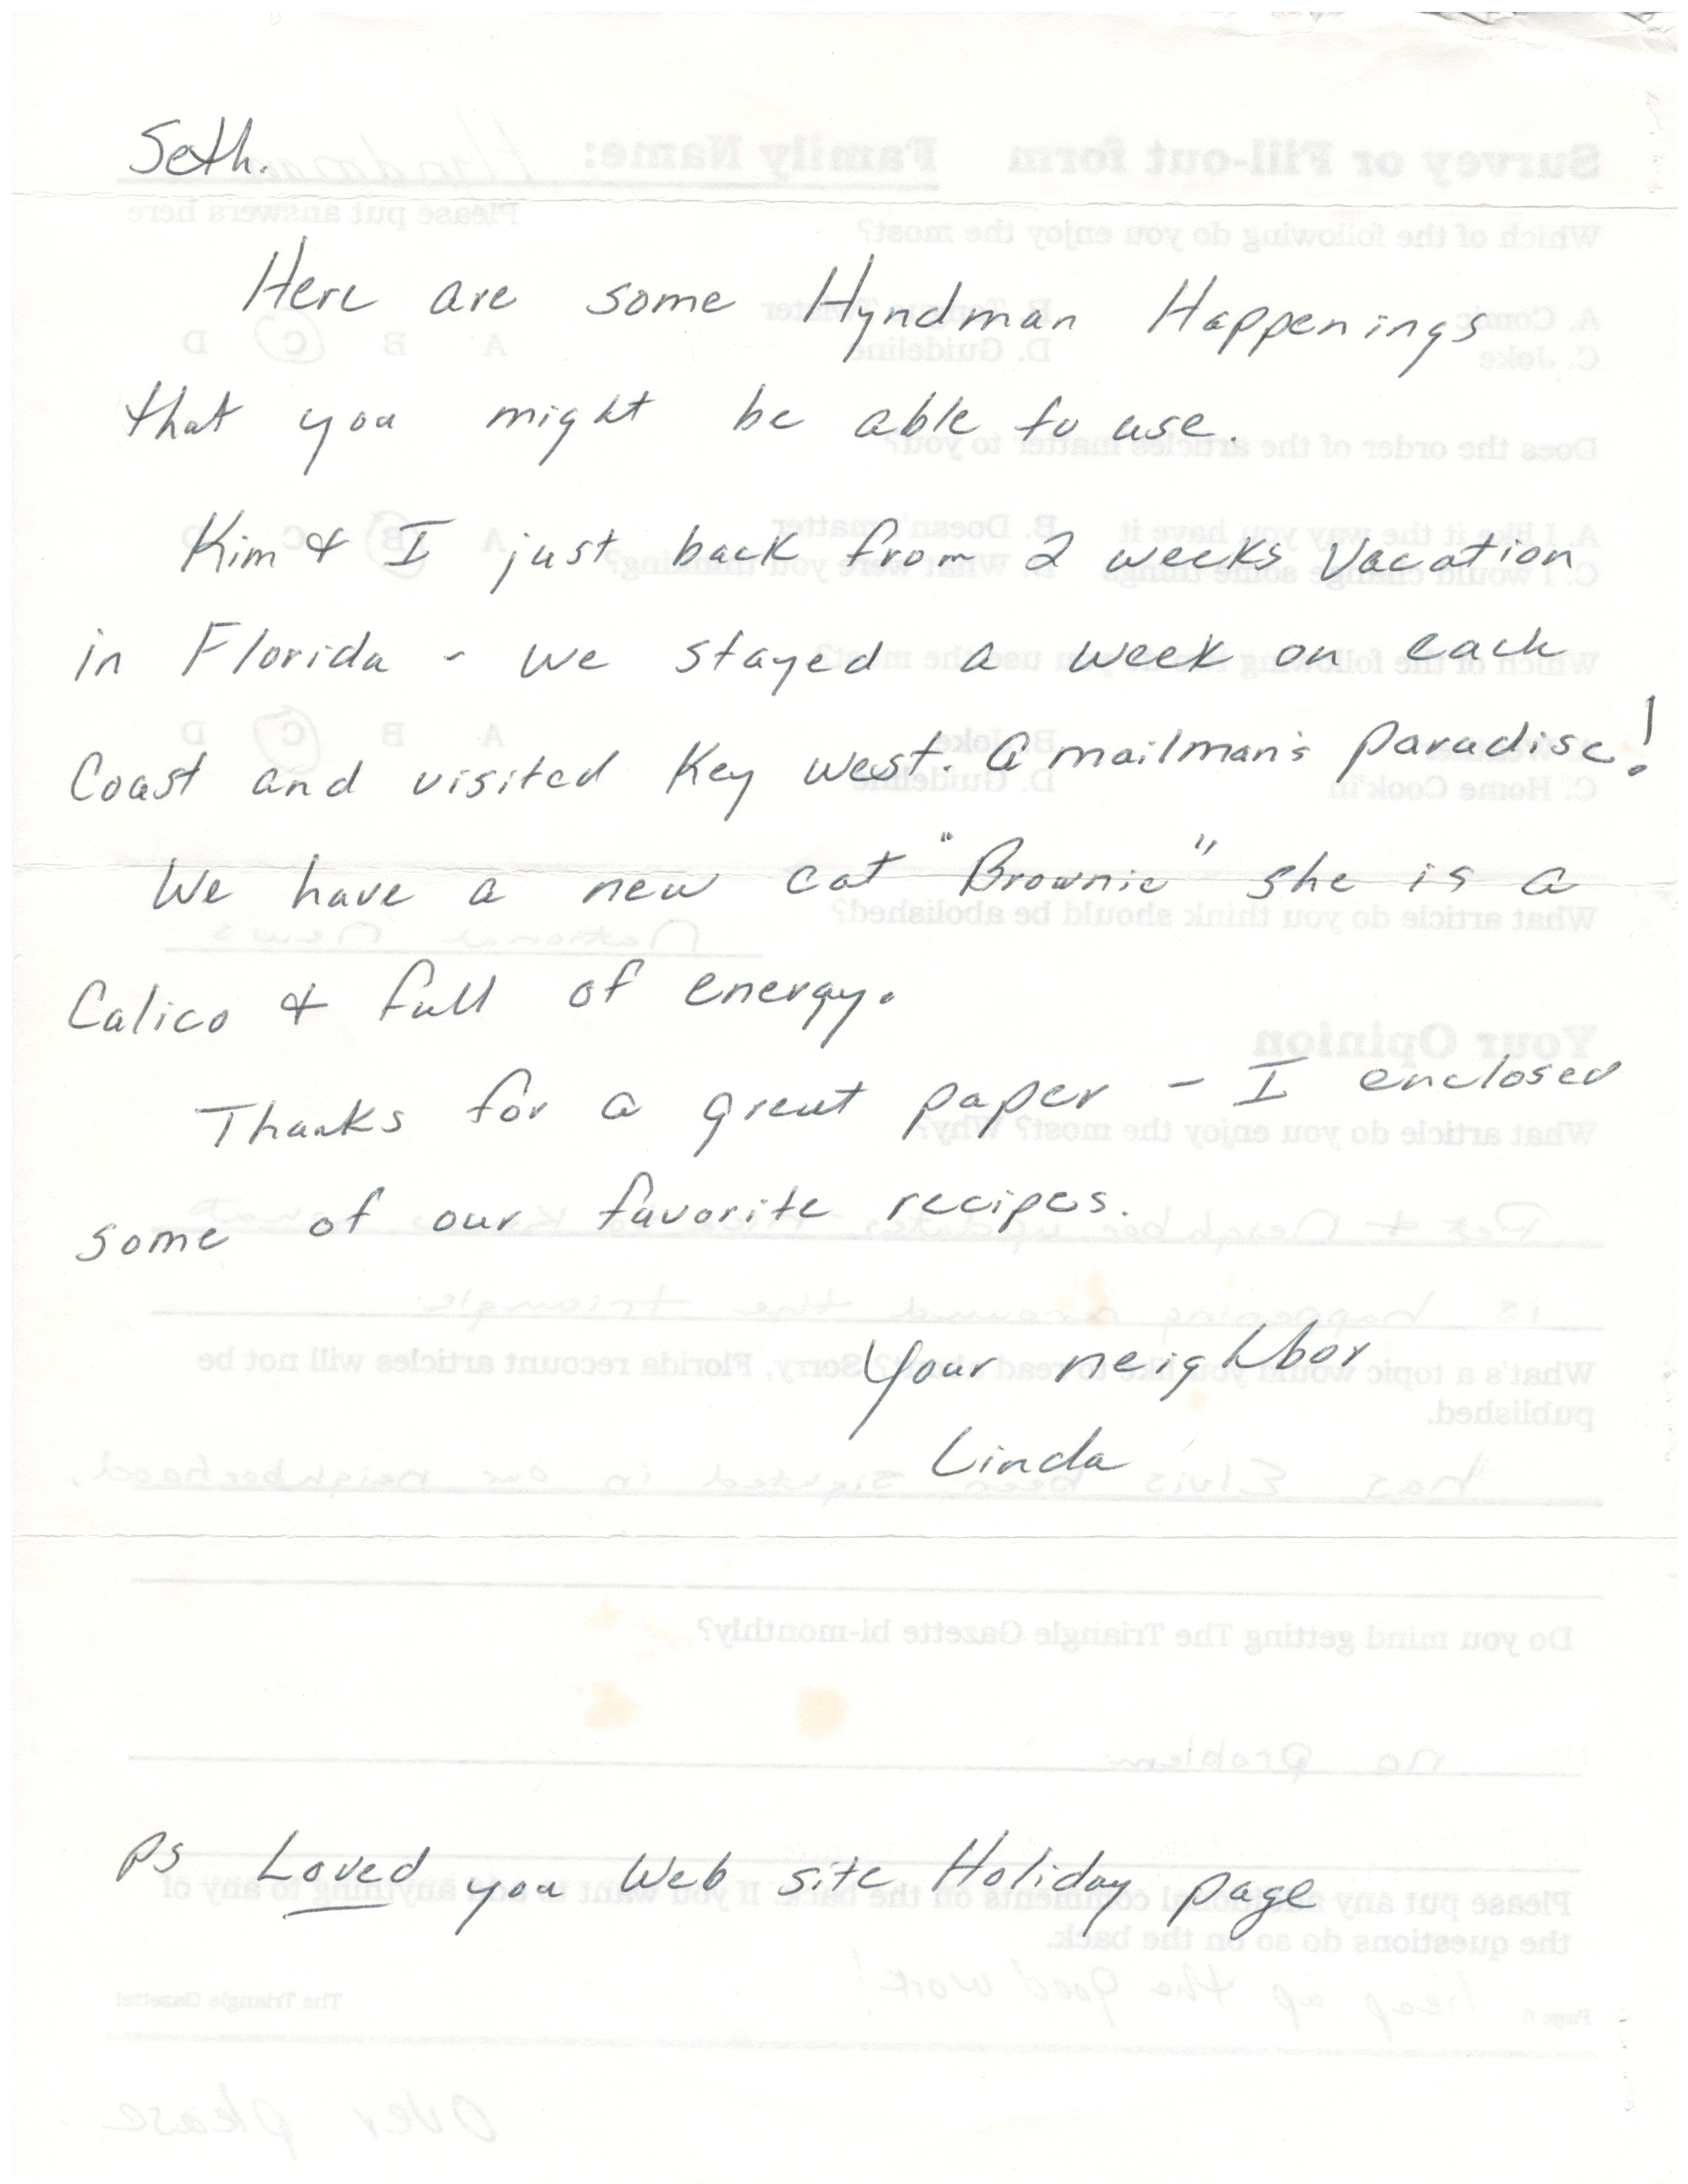 Seth.
Here are some Hyndman Happenings
that you might be able to use.
Kim & I just back from 2 weeks Vacation
in Florida - we stayed a week on each
Coast and visited Key West. A mailman's paradise!
We have a new cat "Brownie" she is a
Calico & full of energy.
Thanks for a great paper - I enclosed
some of our favorite recipes.
Your neighbor
Linda
PS Loved you Web site Holiday page